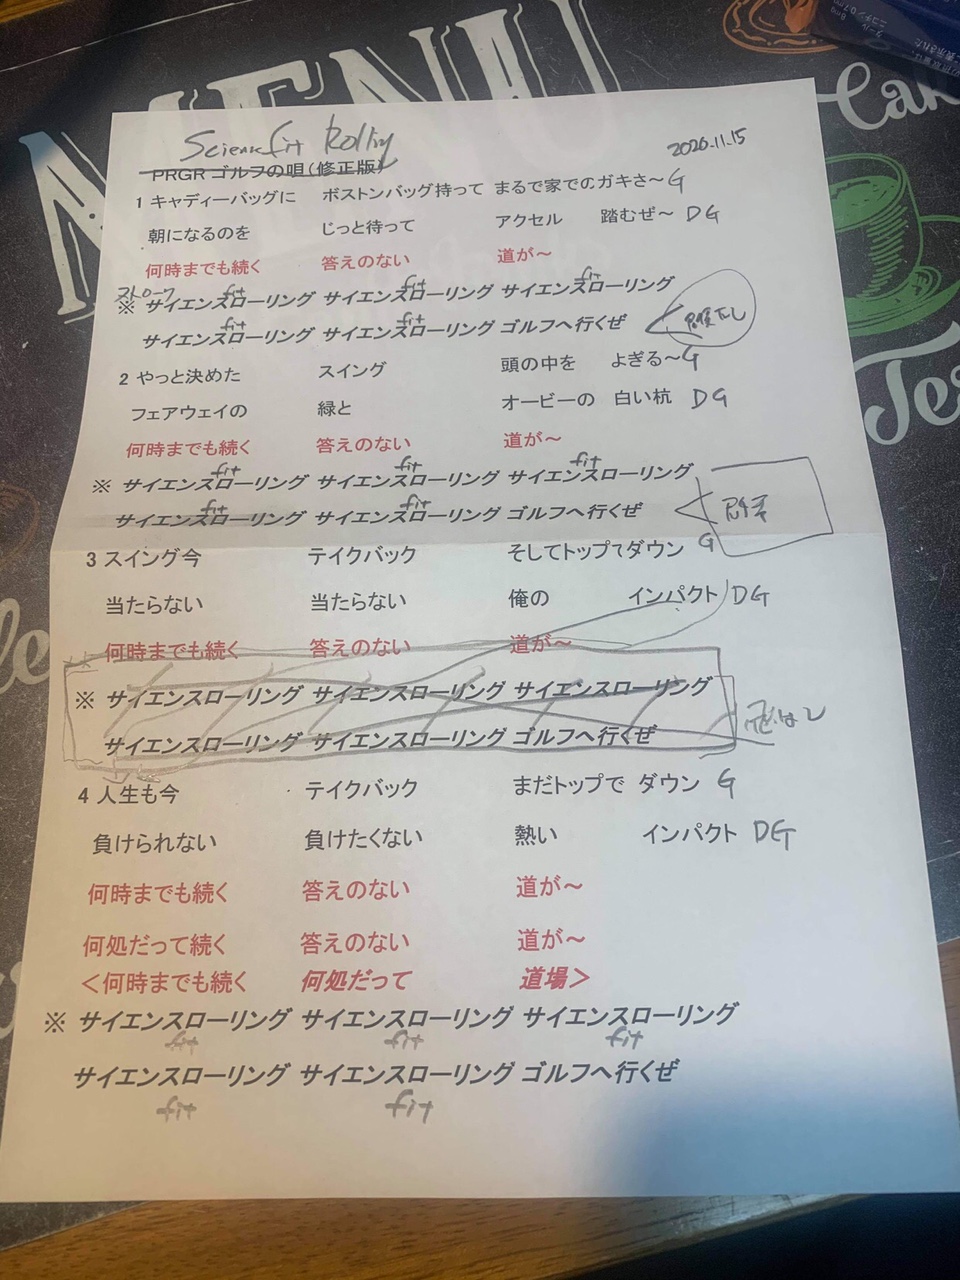 MENU
Science fit Rolling
2020.11.15
PRGR ゴルフの唄(修正版)
1 キャディーバッグに ボストンバッグ持って まるで家でのガキさ～ G
朝になるのを じっと待って アクセル 踏むぜ～ DG
何時までも続く 答えのない 道が～
ストローク fit fit fit
※ サイエンスローリング サイエンスローリング サイエンスローリング
fit fit
サイエンスローリング サイエンスローリング ゴルフへ行くぜ
2 やっと決めた スイング 頭の中を よぎる～ G
フェアウェイの 緑と オービーの 白い杭 DG
何時までも続く 答えのない 道が～
fit fit fit
※ サイエンスローリング サイエンスローリング サイエンスローリング
fit fit
サイエンスローリング サイエンスローリング ゴルフへ行くぜ
3 スイング今 テイクバック そしてトップでダウン G
当たらない 当たらない 俺の インパクト DG
何時までも続く 答えのない 道が～
※ サイエンスローリング サイエンスローリング サイエンスローリング
サイエンスローリング サイエンスローリング ゴルフへ行くぜ
4 人生も今 テイクバック まだトップで ダウン G
負けられない 負けたくない 熱い インパクト DG
何時までも続く 答えのない 道が～
何処だって続く 答えのない 道が～
＜何時までも続く 何処だって 道場＞
※ サイエンスローリング サイエンスローリング サイエンスローリング
fit fit fit
サイエンスローリング サイエンスローリング ゴルフへ行くぜ
fit fit